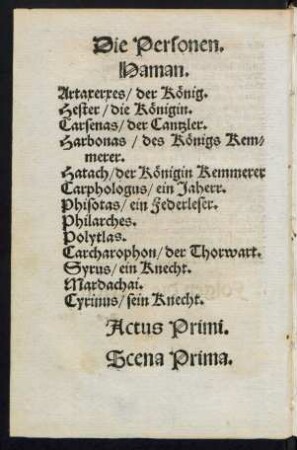 Die Personen.
Haman.
Artaxerxes/ der König.
Hester/ die Königin.
Carsenas/ der Cantzler.
Harbonas / des Königs Kem-
merer.
Hatach/der Königin Kemmerer
Carphologus/ ein Jaherr.
Phisotas/ ein Federleser.
Philarches.
Polytlas.
Carcharophon/ der Thorwart.
Syrus/ ein Knecht.
Mardachai.
Cyrinus/ sein Knecht.
Actus Primi.
Scena Prima.